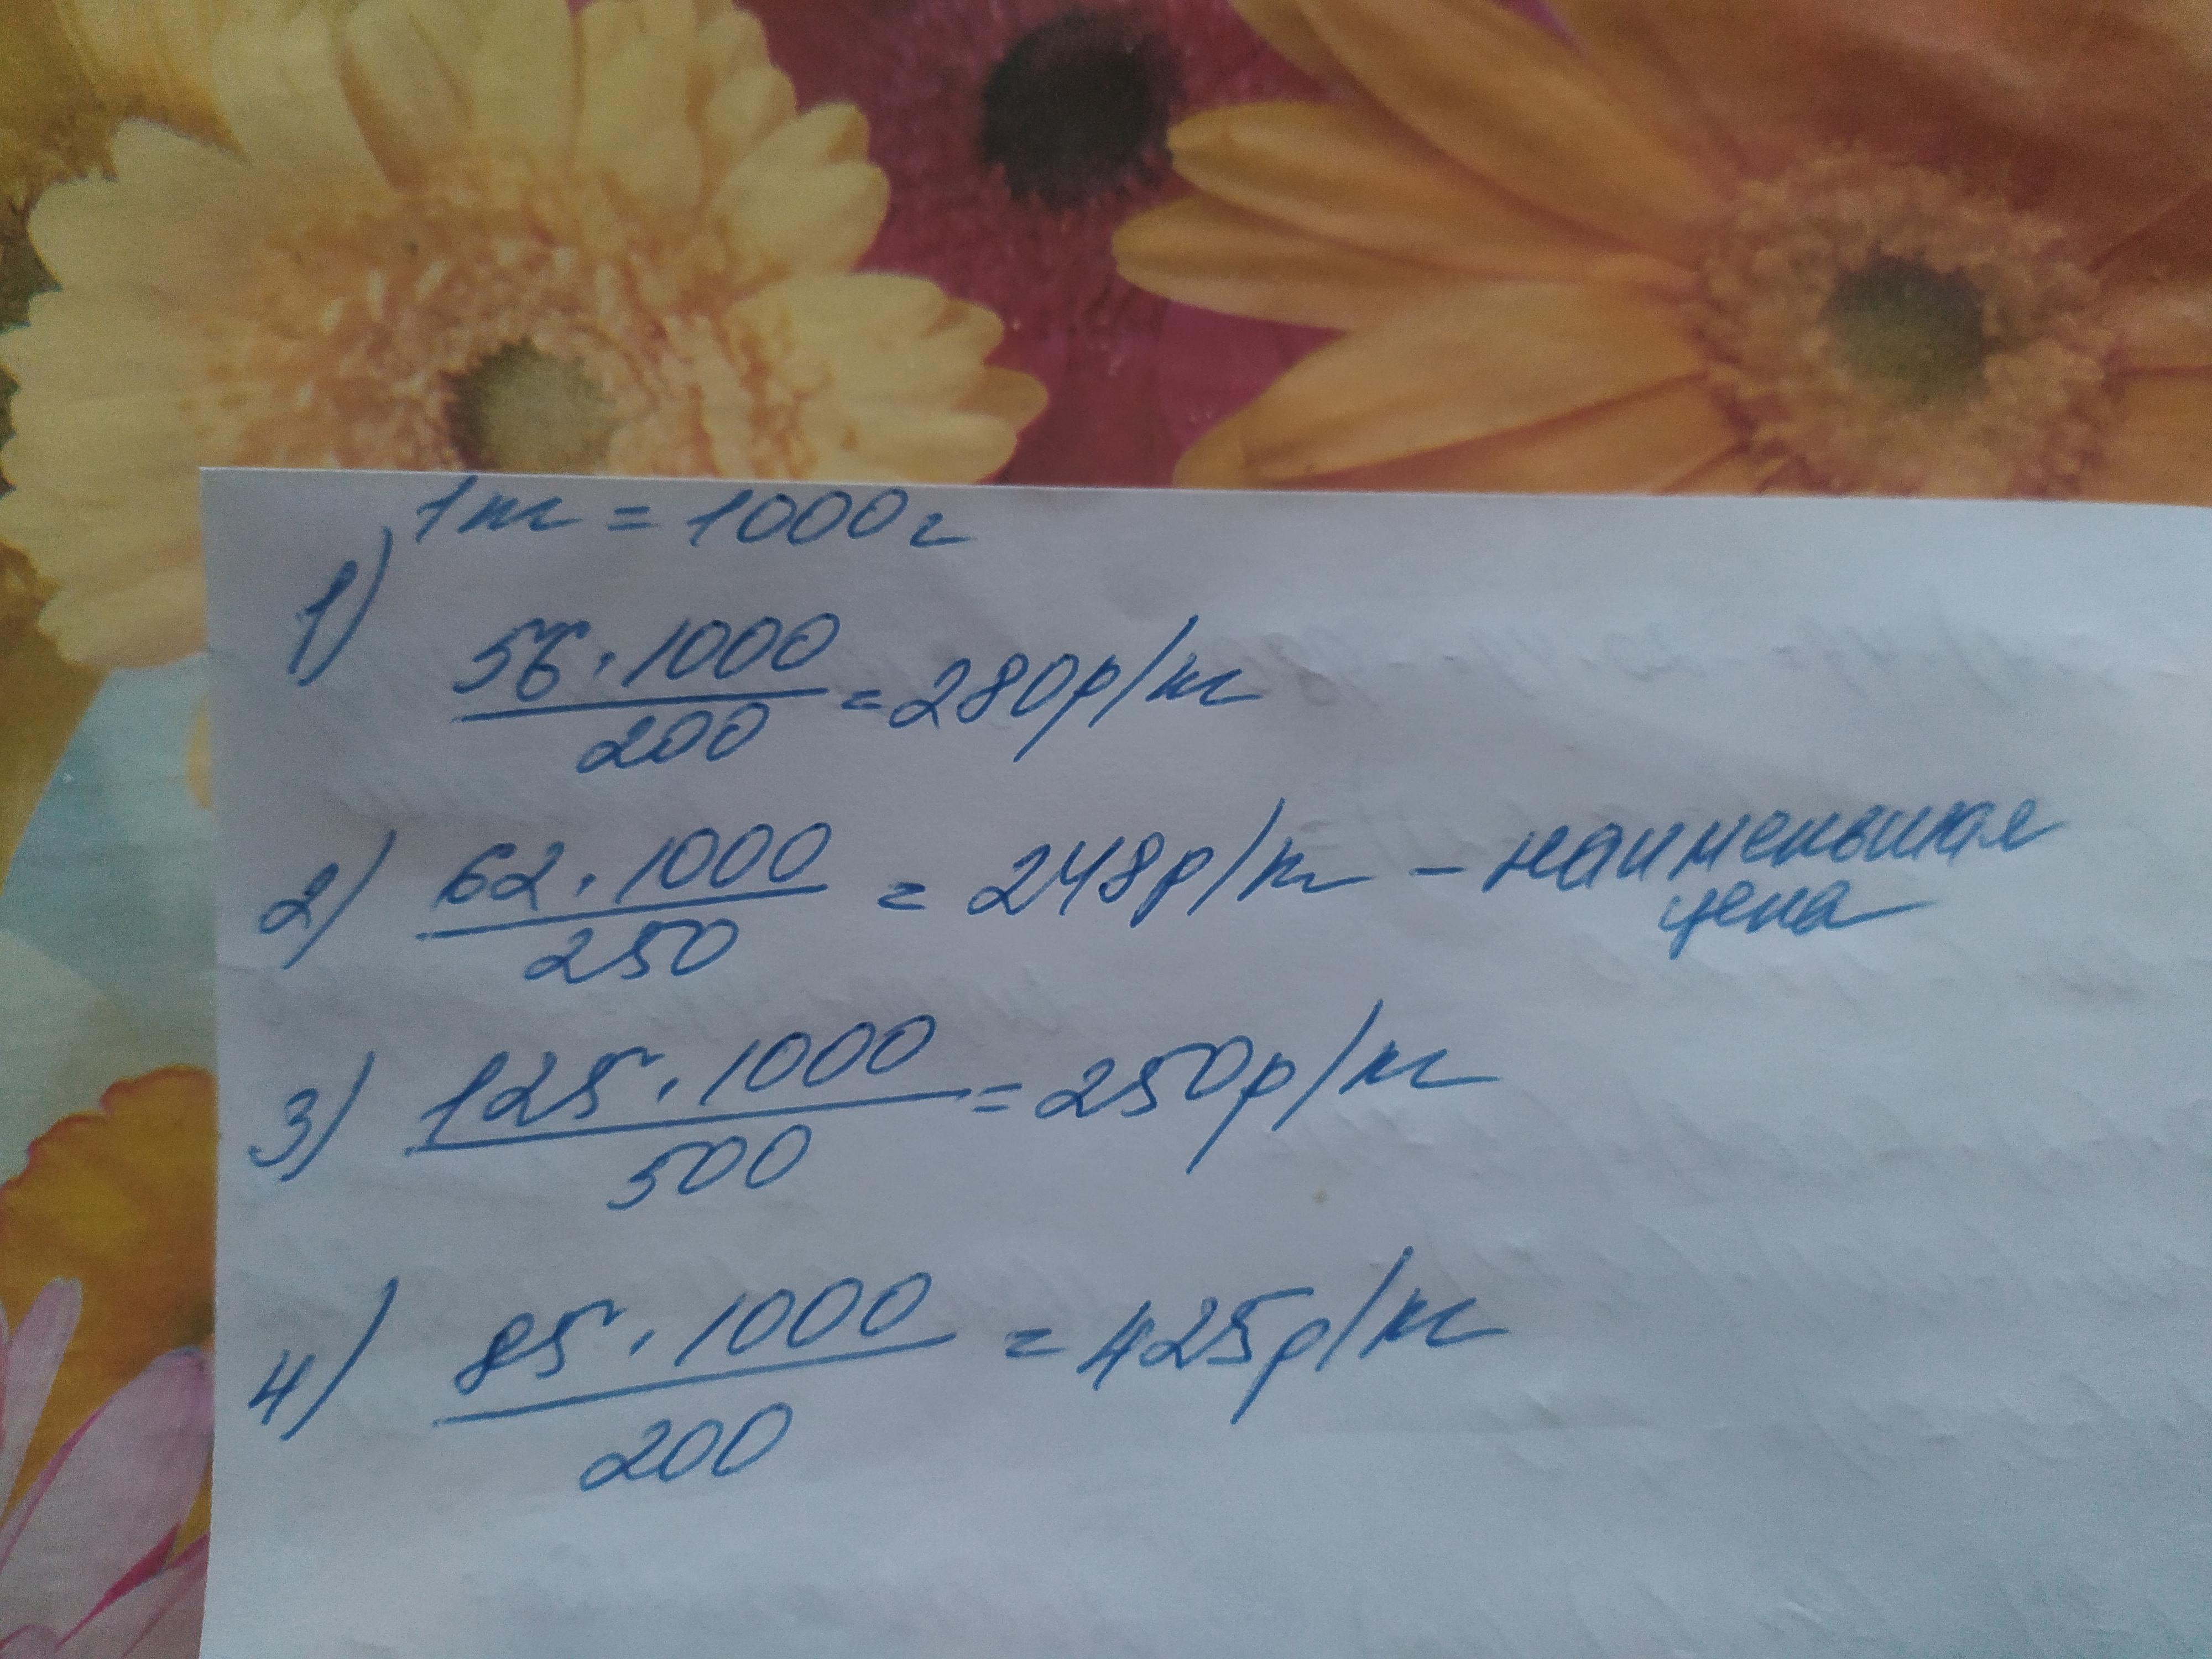 1кг = 1000г
1) 56 · 1000 / 200 = 280р/кг
2) 62 · 1000 / 250 = 248р/кг – наименьшая
цена
3) 125 · 1000 / 500 = 250р/кг
4) 85 · 1000 / 200 = 425р/кг